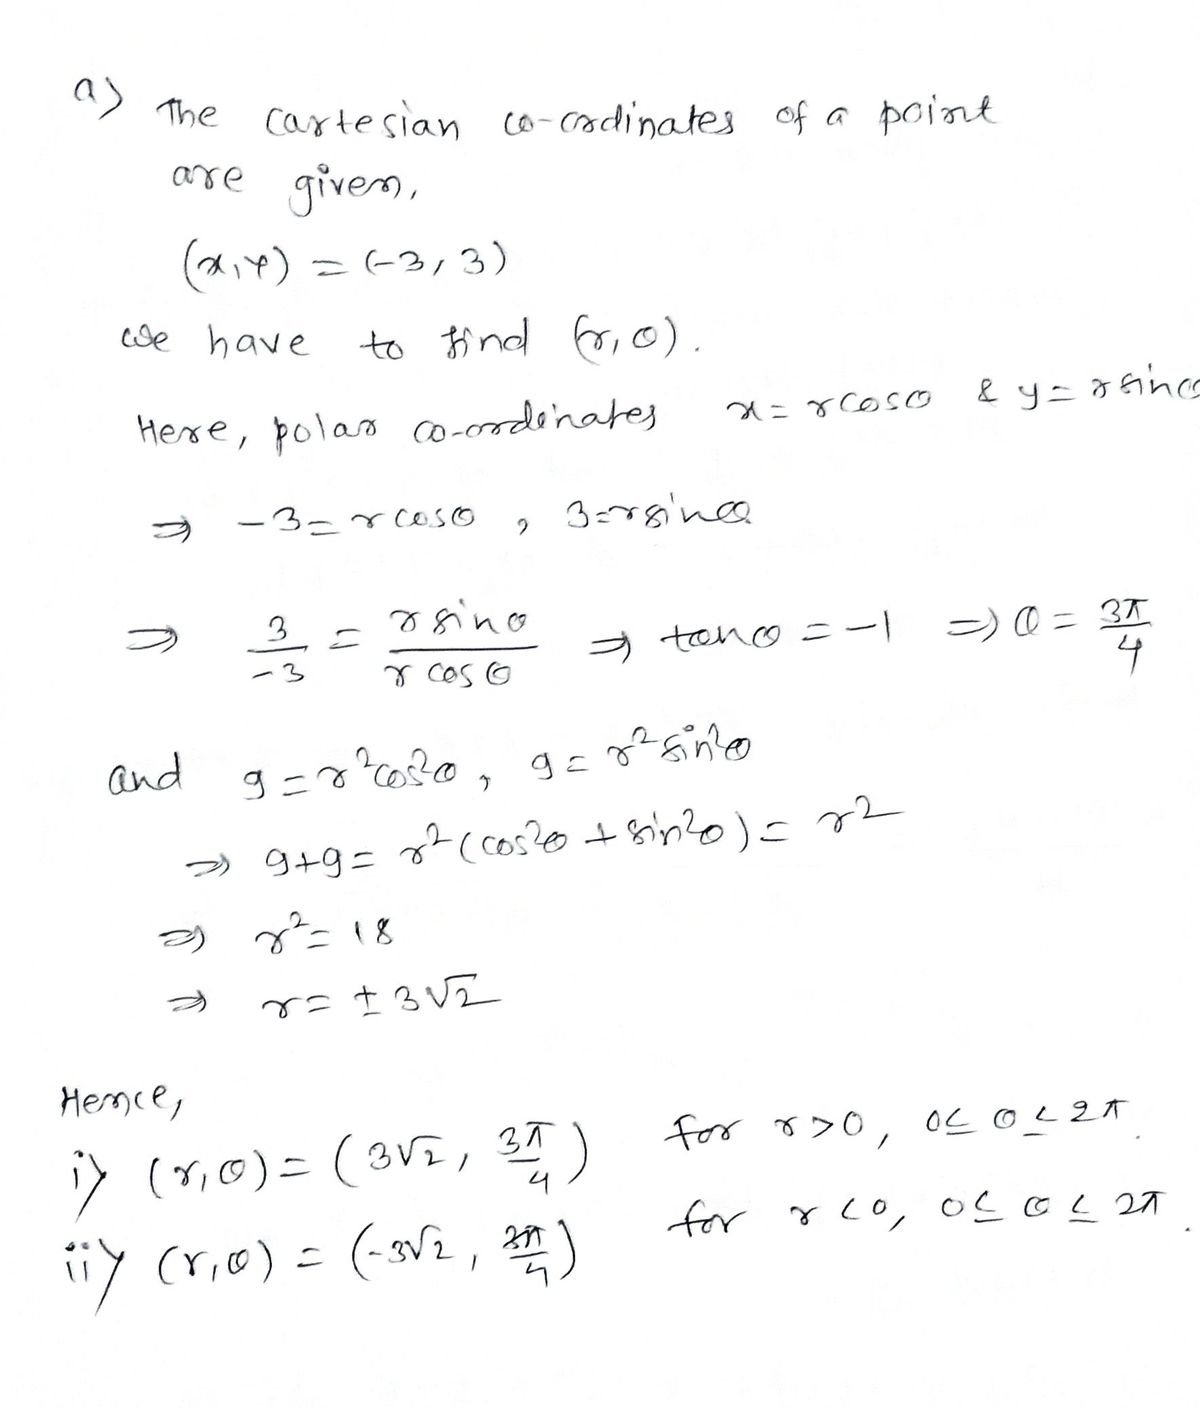 a) The cartesian co-ordinates of a point
are given,
(x,y) = (-3, 3)
we have to find (r,θ).
Here, polar co-ordinates x = r cosθ & y = r sinθ
⇒ -3 = r cosθ , 3 = r sinθ
⇒ 3/-3 = r sinθ / r cosθ ⇒ tanθ = -1 ⇒ θ = 3π/4
and 9 = r²cos²θ , 9 = r² sin²θ
⇒ 9+9 = r² (cos²θ + sin²θ) = r²
⇒ r² = 18
⇒ r = ± 3√2
Hence,
i) (r,θ) = (3√2, 3π/4) for r>0, 0≤ θ ≤ 2π.
ii) (r,θ) = (-3√2, 3π/4) for r<0, 0≤ θ ≤ 2π.